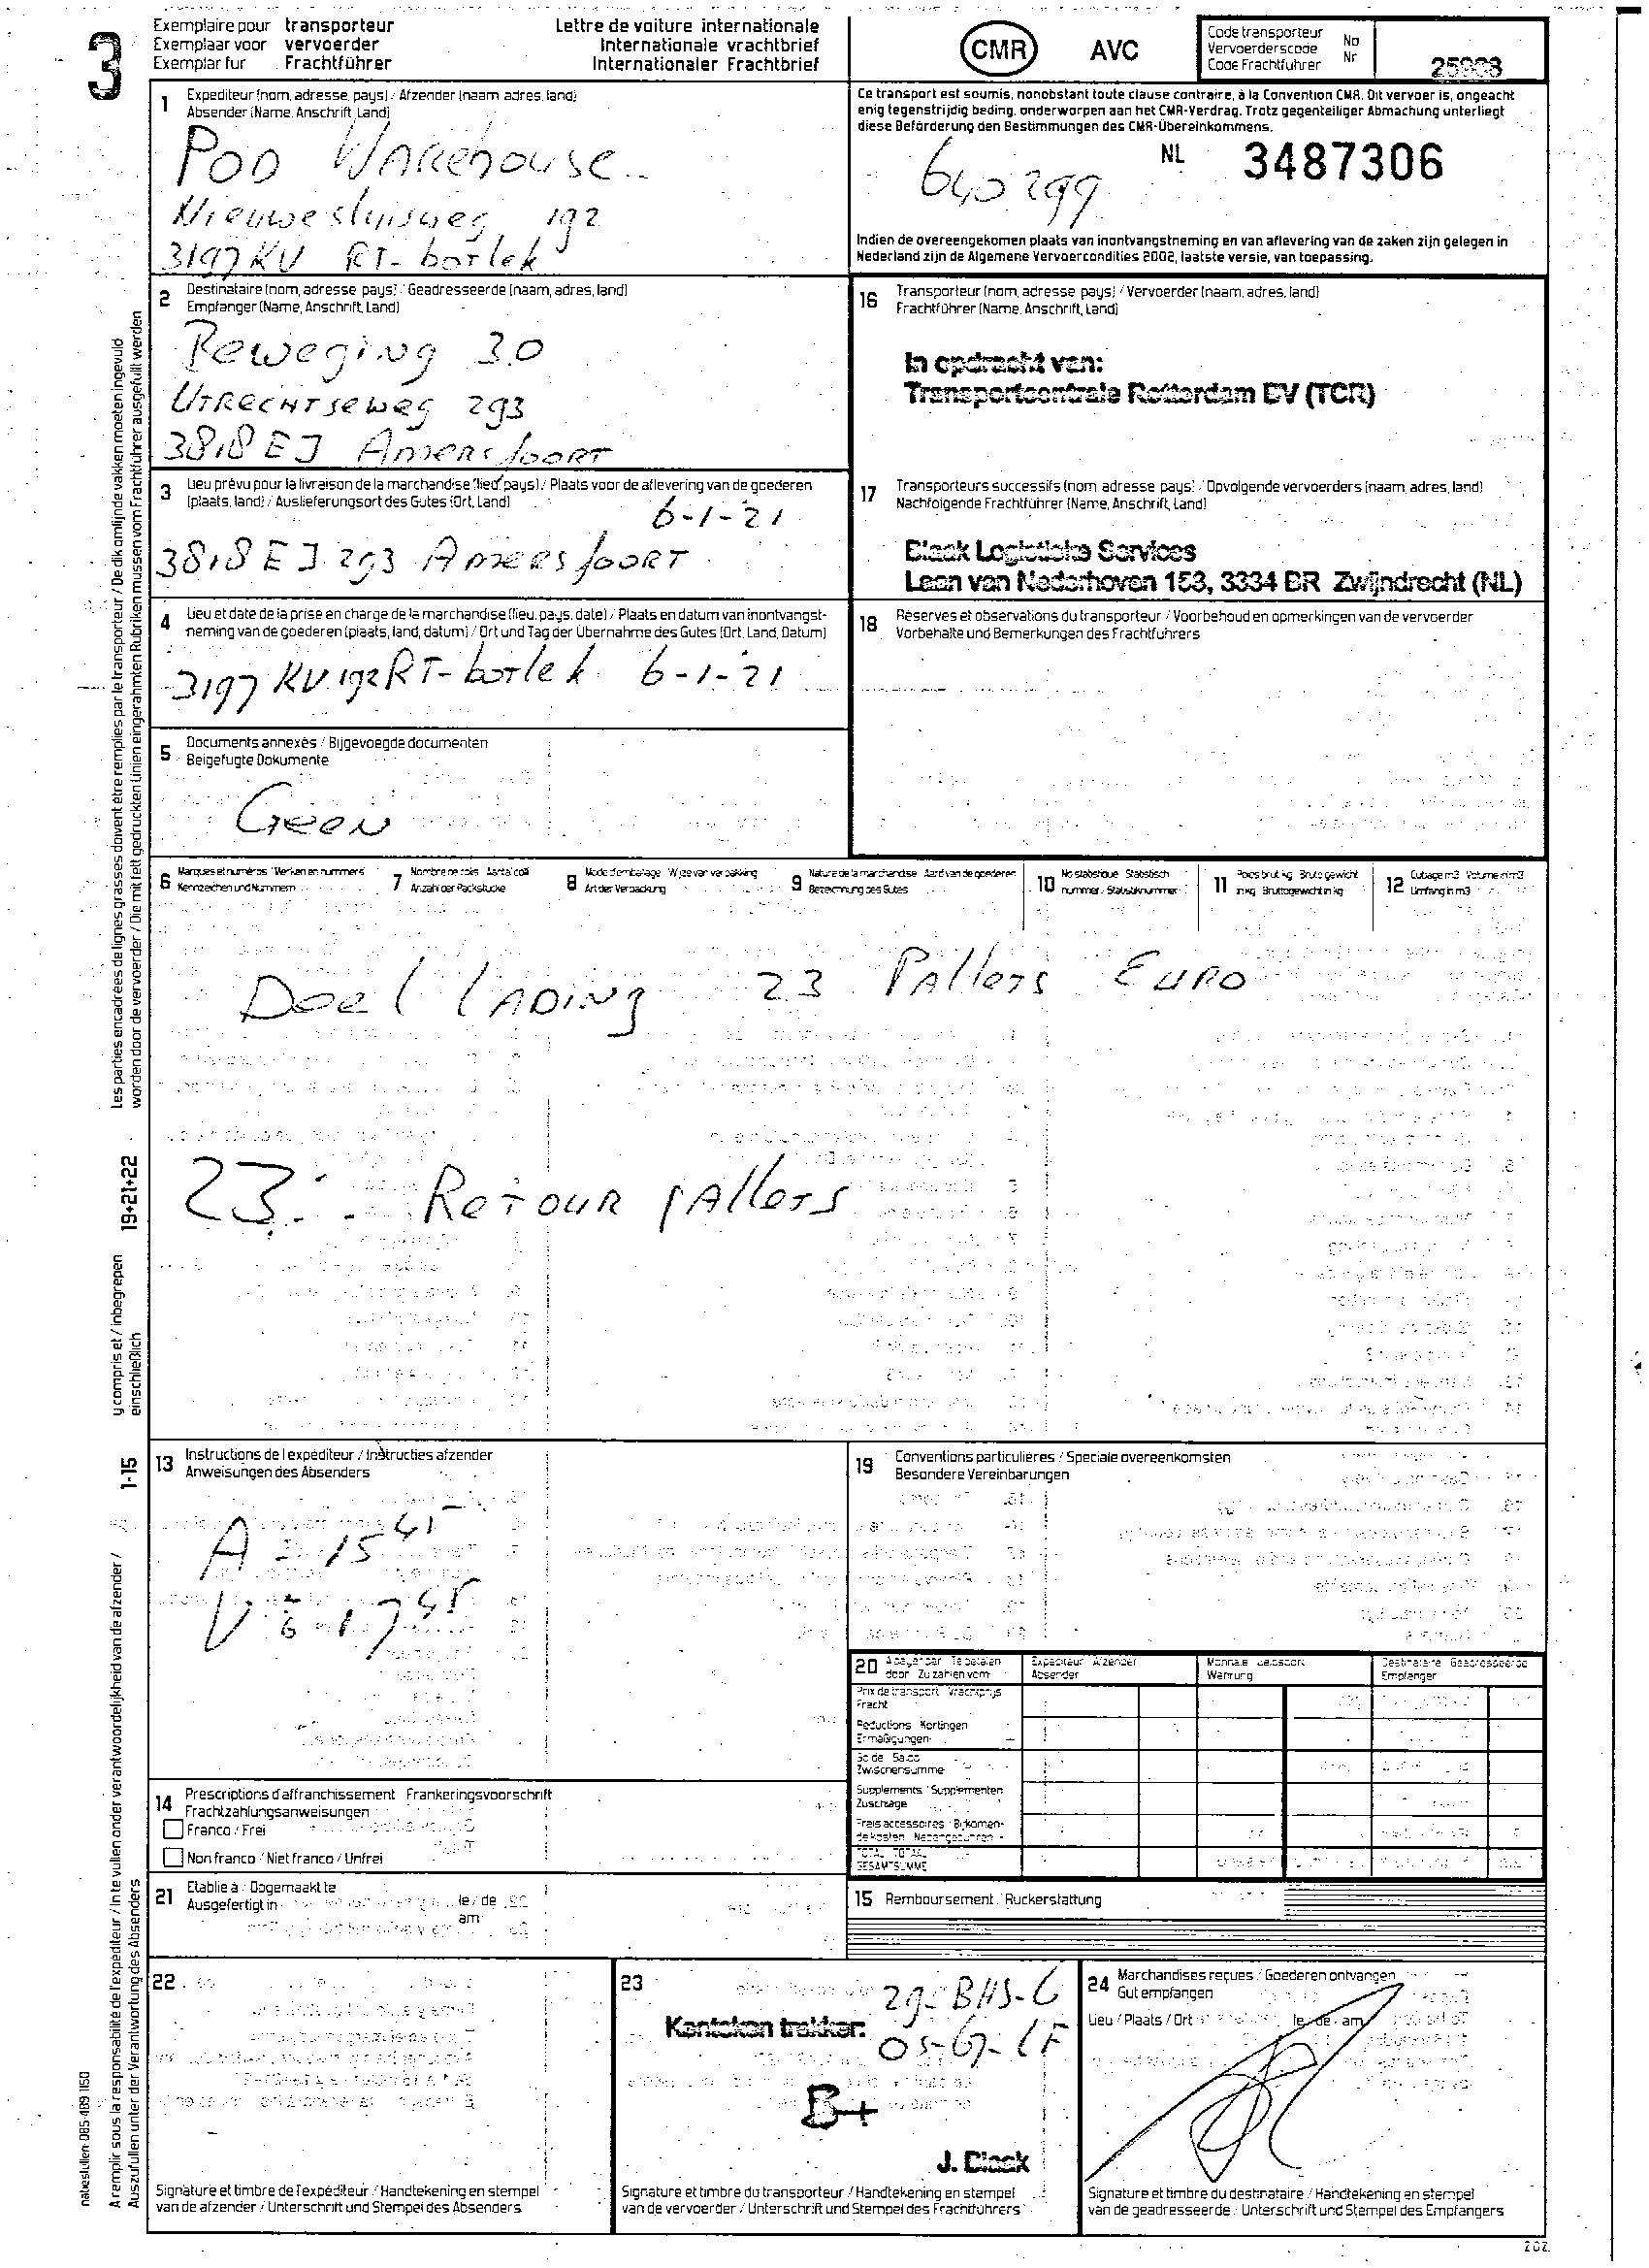 3
Exemplaire pour transporteur
Exemplaar voor vervoerder
Exemplar fur Frachtführer
Lettre de voiture internationale
Internationale vrachtbrief
Internationaler Frachtbrief
CMR
AVC
Code transporteur
Vervoerderscode
Code Frachtfuhrer
No
Nr
1 Expediteur (nom, adresse, pays) / Afzender (naam adres, land)
Absender (Name, Anschrift, Land)
POD Warehouse
Nieuwesluisweg 192
3197 KV RT-botlek
Ce transport est soumis, nonobstant toute clause contraire, à la Convention CMR. Dit vervoer is, ongeacht
enig tegenstrijdig beding, onderworpen aan het CMR-Verdrag. Trotz gegenteiliger Abmachung unterliegt
diese Beförderung den Bestimmungen des CMR-Übereinkommens.
NL 3487306
640299
Indien de overeengekomen plaats van inontvangstneming en van aflevering van de zaken zijn gelegen in
Nederland zijn de Algemene Vervoercondities 2002, laatste versie, van toepassing.
2 Destinataire (nom, adresse pays) / Geadresseerde (naam, adres, land)
Empfanger (Name, Anschrift, Land)
Beweging 3.0
Utrechtseweg 293
3818 EJ Amersfoort
16 Transporteur (nom, adresse pays) / Vervoerder (naam, adres, land)
Frachtführer (Name, Anschrift, Land)
In opdracht van:
Transportcentrale Rotterdam BV (TCR)
3 Lieu prévu pour la livraison de la marchandise (lieu, pays) / Plaats voor de aflevering van de goederen
(plaats, land) / Auslieferungsort des Gutes (Ort, Land)
6-1-21
3818 EJ 293 Amersfoort
17 Transporteurs successifs (nom adresse pays) / Opvolgende vervoerders (naam, adres, land)
Nachfolgende Frachtführer (Name, Anschrift, Land)
Blaak Logistieke Services
Laan van Nederhoven 153, 3334 BR Zwijndrecht (NL)
4 Lieu et date de la prise en charge de la marchandise (lieu, pays, date) / Plaats en datum van inontvangst-
neming van de goederen (plaats, land, datum) / Ort und Tag der Übernahme des Gutes (Ort, Land, Datum)
3197 KV 192 RT-botlek 6-1-21
18 Réserves et observations du transporteur / Voorbehoud en opmerkingen van de vervoerder
Vorbehalte und Bemerkungen des Frachtfuhrers
5 Documents annexés / Bijgevoegde documenten
Beigefugte Dokumente
Geen
6 Marques et numéros / Merken en nummers
Kennzeichen und Nummern
7 Nombre de colis / Aantal colli
Anzahl der Packstucke
8 Mode d'emballage / Wijze van verpakking
Art der Verpackung
9 Nature de la marchandise / Aard van de goederen
Bezeichnung des Gutes
10 No statistique / Statistisch
nummer / Statistiknummer
11 Poids brut kg / Bruto gewicht
in kg / Bruttogewicht in kg
12 Cubage m3 / Volume in m3
Umfang in m3
Deel lading 23 Pallets Euro
23 Retour pallets
Les parties encadrées de lignes grasses doivent être remplies par le transporteur / De dik omlijnde vakken moeten ingevuld
worden door de vervoerder / Die mit fett gedruckten Linien eingerahmten Rubriken mussen vom Frachtführer ausgefüllt werden
19+21+22
y compris et / inbegrepen
einschließlich
1-15
A remplir sous la responsabilité de l'expéditeur / In te vullen onder verantwoordelijkheid van de afzender /
Auszufullen unter der Verantwortung des Absenders
13 Instructions de l'expéditeur / Instructies afzender
Anweisungen des Absenders
A = 15 45
V = 17 45
19 Conventions particulières / Speciale overeenkomsten
Besondere Vereinbarungen
20 A payer par / Te betalen
door / Zu zahlen vom
Expediteur / Afzender
Absender
Monnaie / Geldsoort
Wahrung
Destinataire / Geadresseerde
Empfanger
Prix de transport / Vrachtprijs
Fracht
Reductions / Kortingen
Ermäßigungen
Solde / Saldo
Zwischensumme
Supplements / Supplementen
Zuschlage
Frais accessoires / Bijkomen-
de kosten / Nebengebuhren +
TOTAL / TOTAAL
GESAMTSUMME
14 Prescriptions d'affranchissement / Frankeringsvoorschrift
Frachtzahlungsanweisungen
Franco / Frei
Non franco / Niet franco / Unfrei
21 Etablie à / Opgemaakt te
Ausgefertigt in
le / de
am
15 Remboursement / Ruckerstattung
22
23
29-BHS-6
Kenteken trekker:
05-67-LF
J. Blaak
24 Marchandises reçues / Goederen ontvangen
Gut empfangen
Lieu / Plaats / Ort
le / de / am
Signature et timbre de l'expéditeur / Handtekening en stempel
van de afzender / Unterschrift und Stempel des Absenders
Signature et timbre du transporteur / Handtekening en stempel
van de vervoerder / Unterschrift und Stempel des Frachtführers
Signature et timbre du destinataire / Handtekening en stempel
van de geadresseerde / Unterschrift und Stempel des Empfangers
nabestellen: 085 489 1150